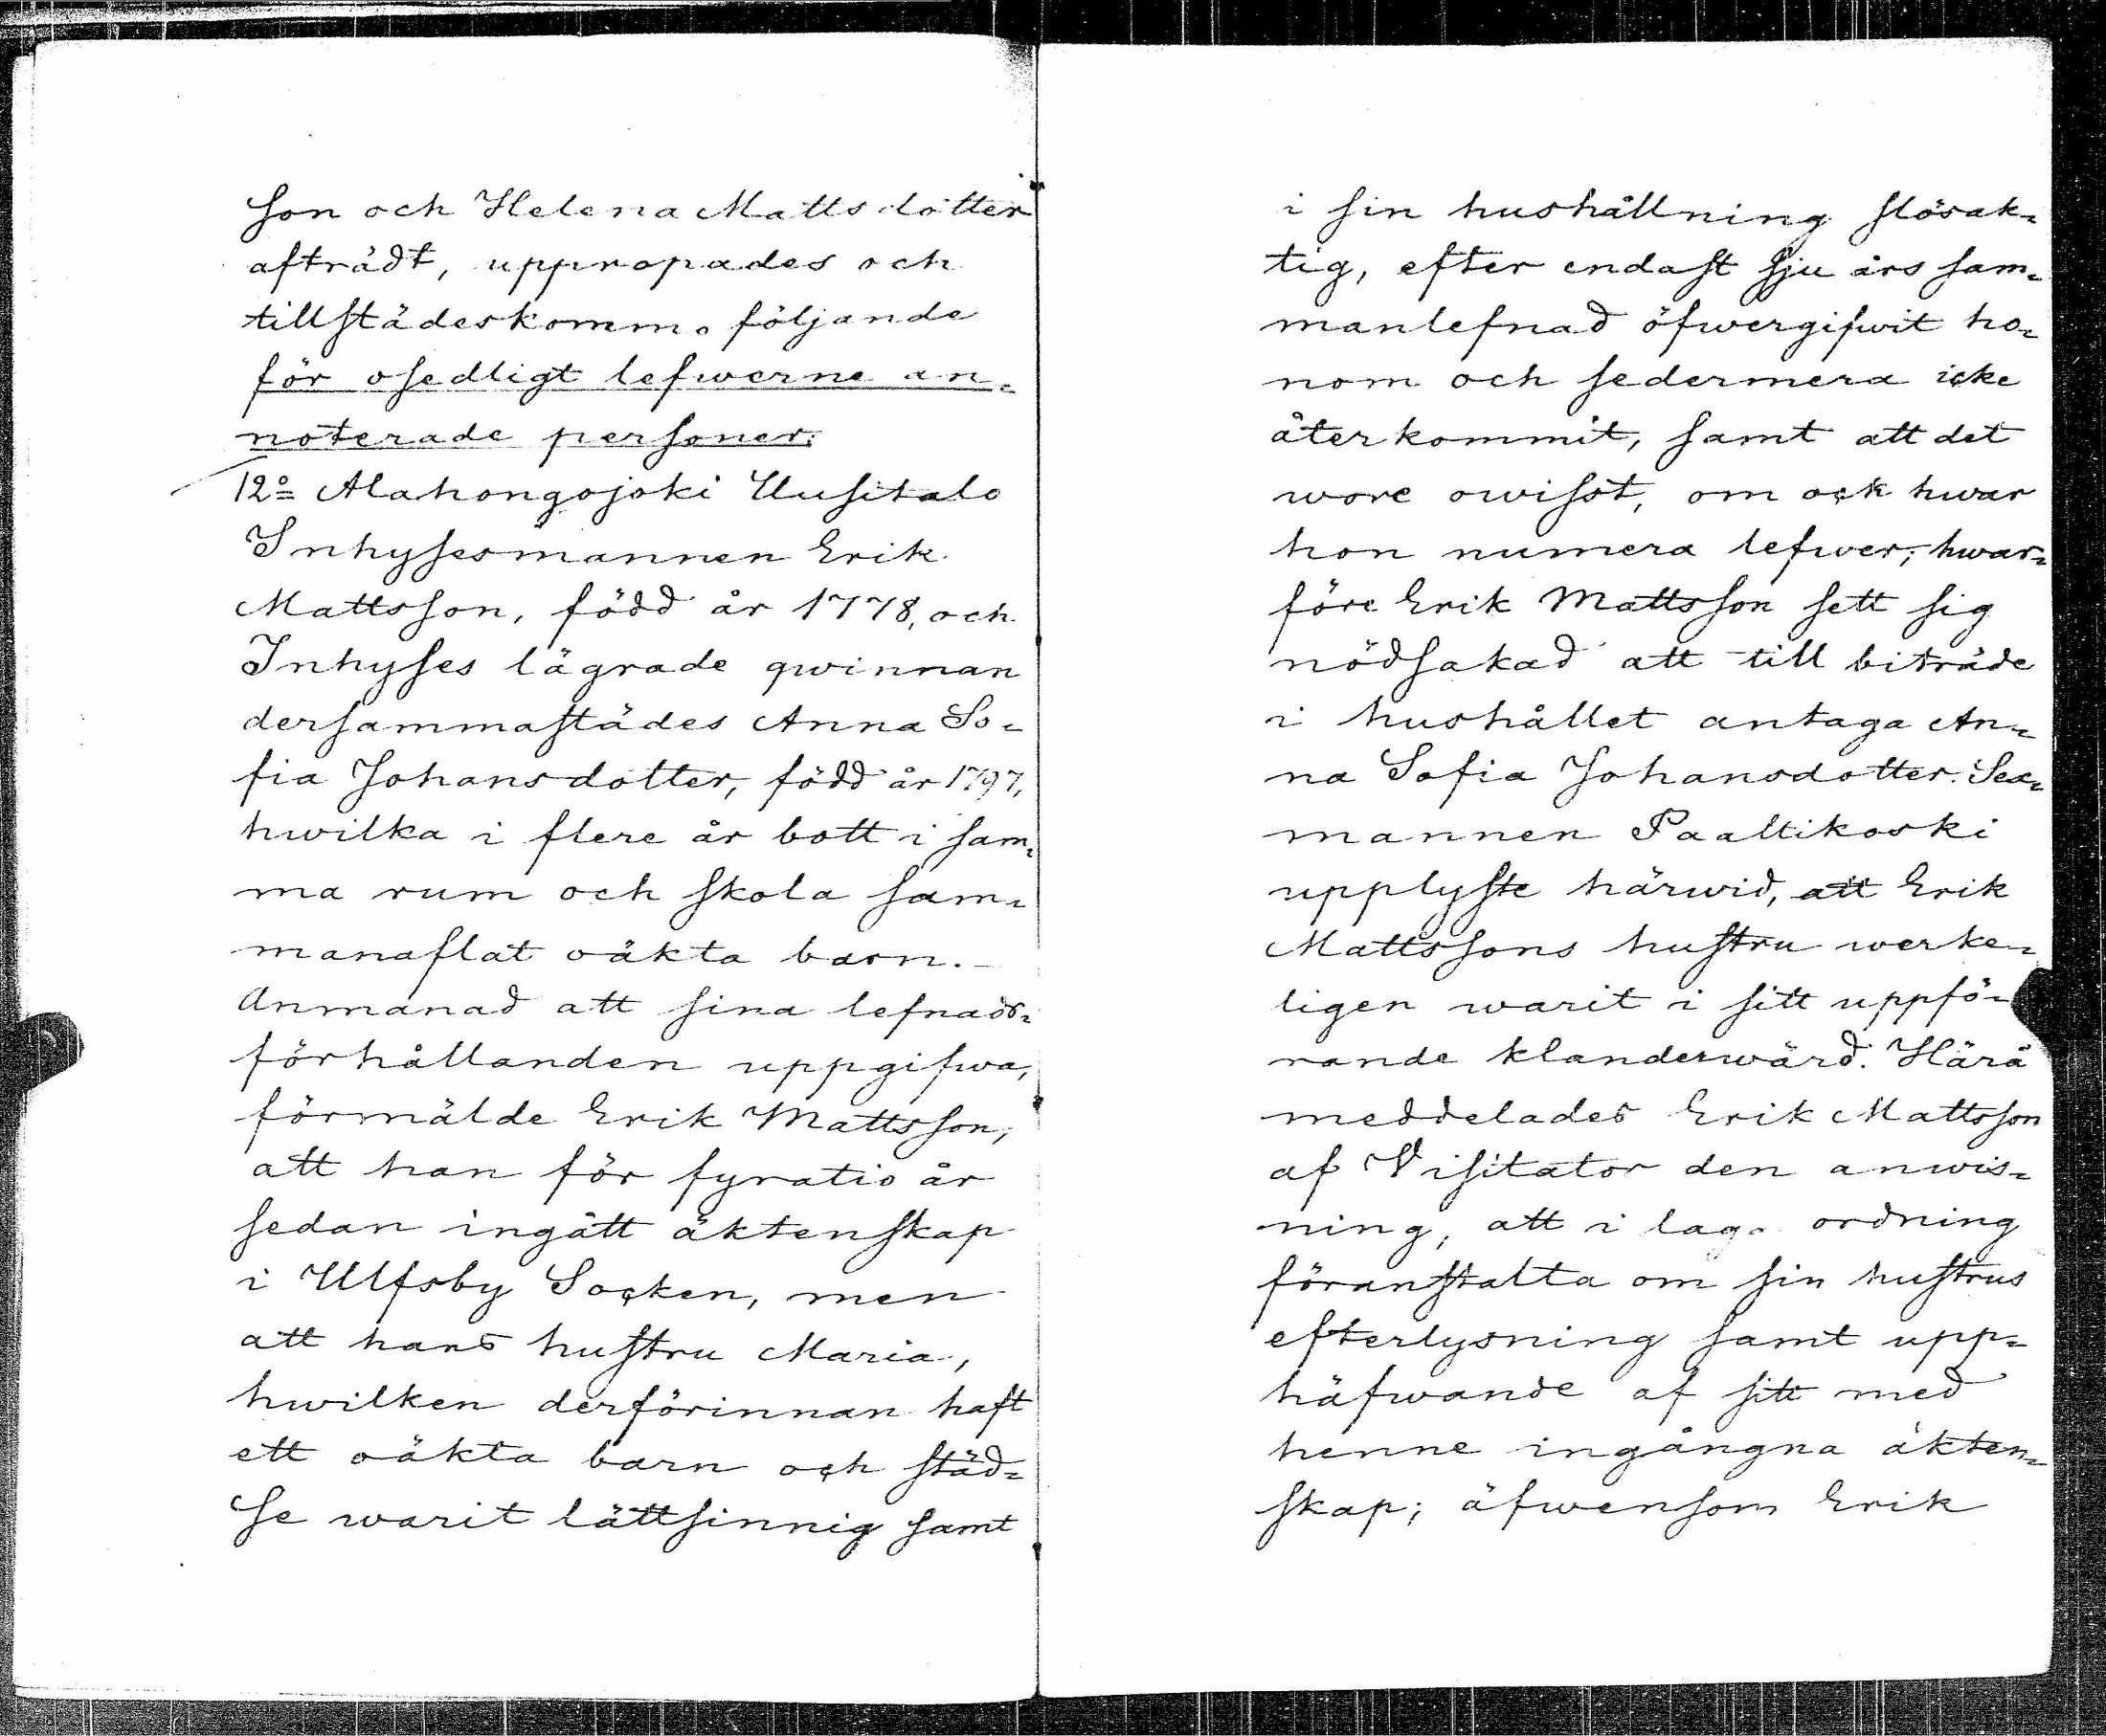 son och Helena Mattsdotter
afträdt, uppropades och
tillstädeskommo följande
för osedligt lefwerne an=
noterade personer:
12o= Alahongojoki Uusitalo
Inhysesmannen Erik
Mattsson, född år 1778, och
Inhyses lägrade qwinnan
dersammastädes Anna So=
fia Johansdotter, född år 1797,
hwilka i flere år bott i sam=
ma rum och skola sam=
manaflat oäkta barn.–
Anmanad att sina lefnads=
förhållanden uppgifwa,
förmälde Erik Mattsson,
att han för fyratio år
sedan ingått äktenskap
i Ulfsby Socken, men
att hans hustru Maria,
hwilken derförinnan haft
ett oäkta barn och städ=
se warit lättsinnig samt
i sin hushållning slösak=
tig, efter endast sju års sam=
manlefnad öfwergifwit ho=
nom och sedermera icke
återkommit, samt att det
wore owisst, om ock hwar
hon numera lefwer; hwar=
före Erik Mattsson sett sig
nödsakad att till biträde
i hushållet antaga An=
na Sofia Johansdotter. Sex=
mannen Paaltikoski
upplyste härwid, att Erik
Mattssons hustru werke=
ligen warit i sitt uppfö=
rande klanderwärd. Härå
meddelades Erik Mattsson
af Visitator den anwis=
ning, att i laga ordning
föranstalta om sin hustrus
efterlysning samt upp=
häfwande af sitt med
henne ingångna äkten=
skap; äfwensom Erik